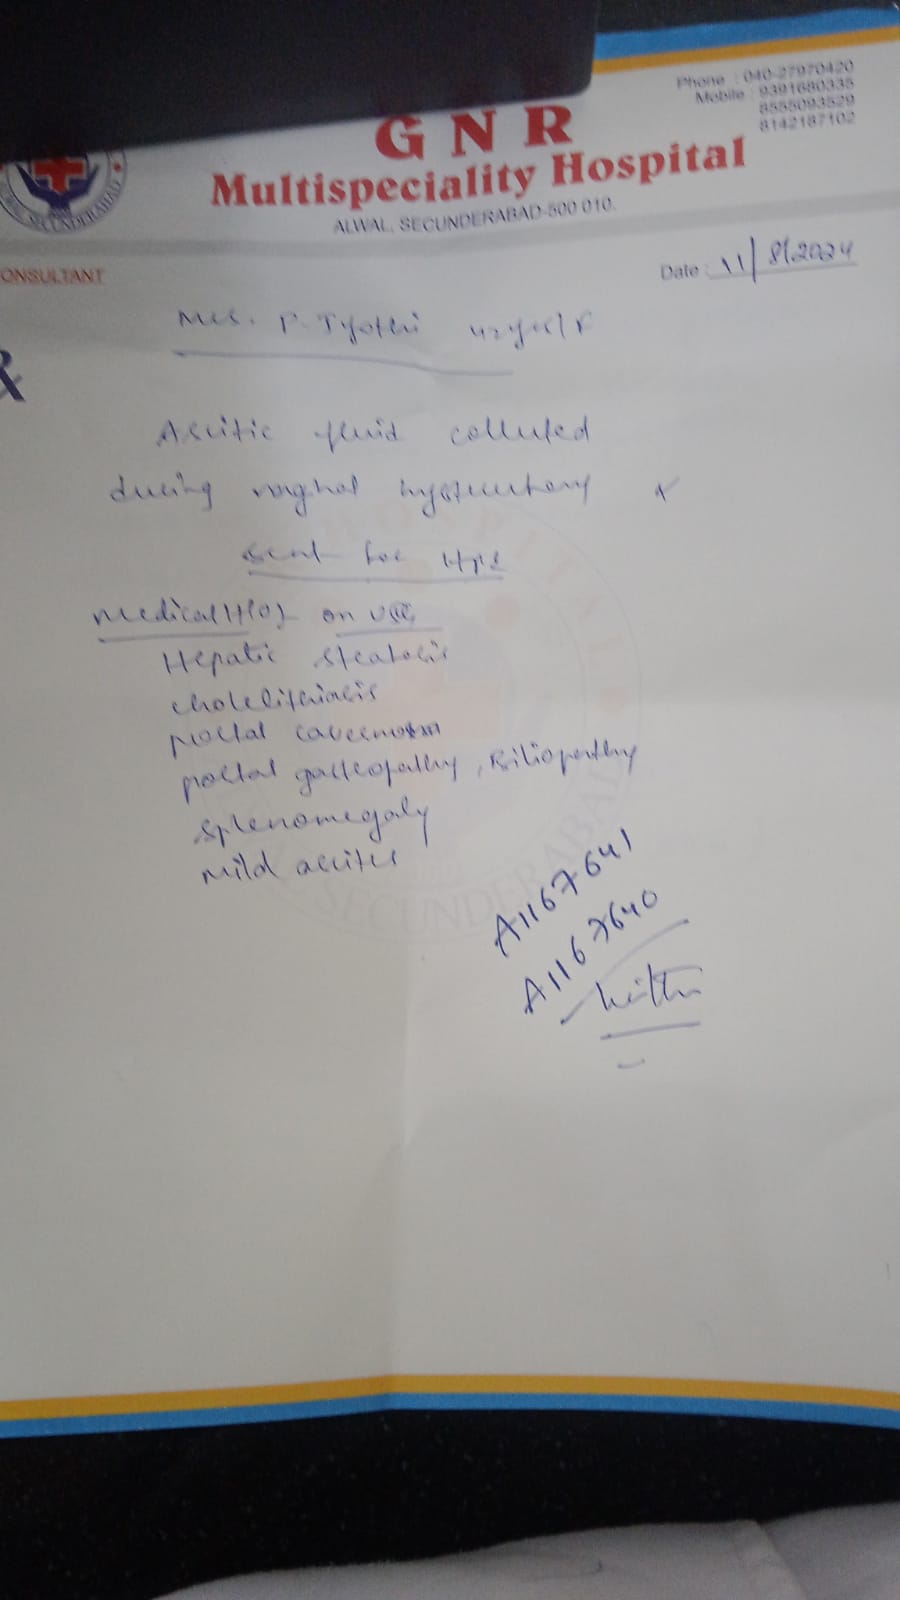 Phone : 040-27970420
Mobile : 9391680335
8555093529
8142187102
G N R
Multispeciality Hospital
ALWAL, SECUNDERABAD-500 010.
ONSULTANT
Date : 11/8/2024
Mrs. P. Jyothi 42yrs/F
Ascitic fluid collected
during vaginal hysterectomy
sent for HPE
Medical H/O on USG
Hepatic steatosis
cholelithiasis
portal cavernoma
portal gastropathy, Biliopathy
splenomegaly
mild ascites
A1167641
A1167640